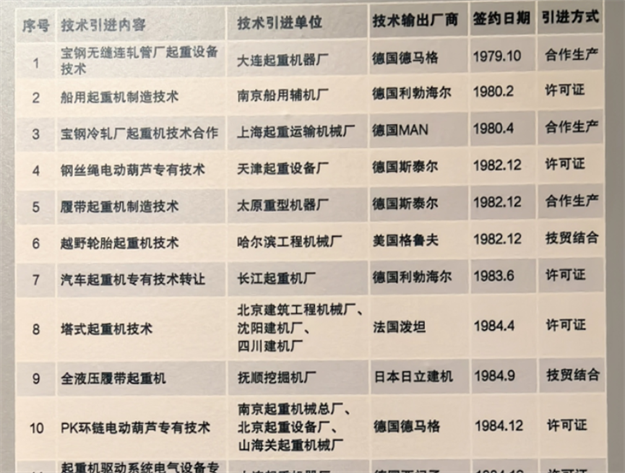 序号 技术引进内容 技术引进单位 技术输出厂商 签约日期 引进方式
1 宝钢无缝连轧管厂起重设备技术 大连起重机器厂 德国德马格 1979.10 合作生产
2 船用起重机制造技术 南京船用辅机厂 德国利勃海尔 1980.2 许可证
3 宝钢冷轧厂起重机技术合作 上海起重运输机械厂 德国MAN 1980.4 合作生产
4 钢丝绳电动葫芦专有技术 天津起重设备厂 德国斯泰尔 1982.12 许可证
5 履带起重机制造技术 太原重型机器厂 德国斯泰尔 1982.12 合作生产
6 越野轮胎起重机技术 哈尔滨工程机械厂 美国格鲁夫 1982.12 技贸结合
7 汽车起重机专有技术转让 长江起重机厂 德国利勃海尔 1983.6 许可证
8 塔式起重机技术 北京建筑工程机械厂、沈阳建机厂、四川建机厂 法国泼坦 1984.4 许可证
9 全液压履带起重机 抚顺挖掘机厂 日本日立建机 1984.9 技贸结合
10 PK环链电动葫芦专有技术 南京起重机械总厂、北京起重设备厂、山海关起重机械厂 德国德马格 1984.12 许可证
起重机驱动系统电气设备专